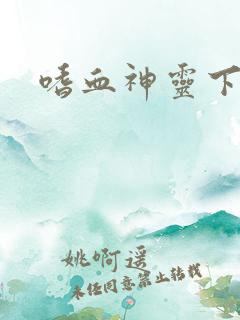 嗜血神靈下
姚啊遥
未任同意禁止转载